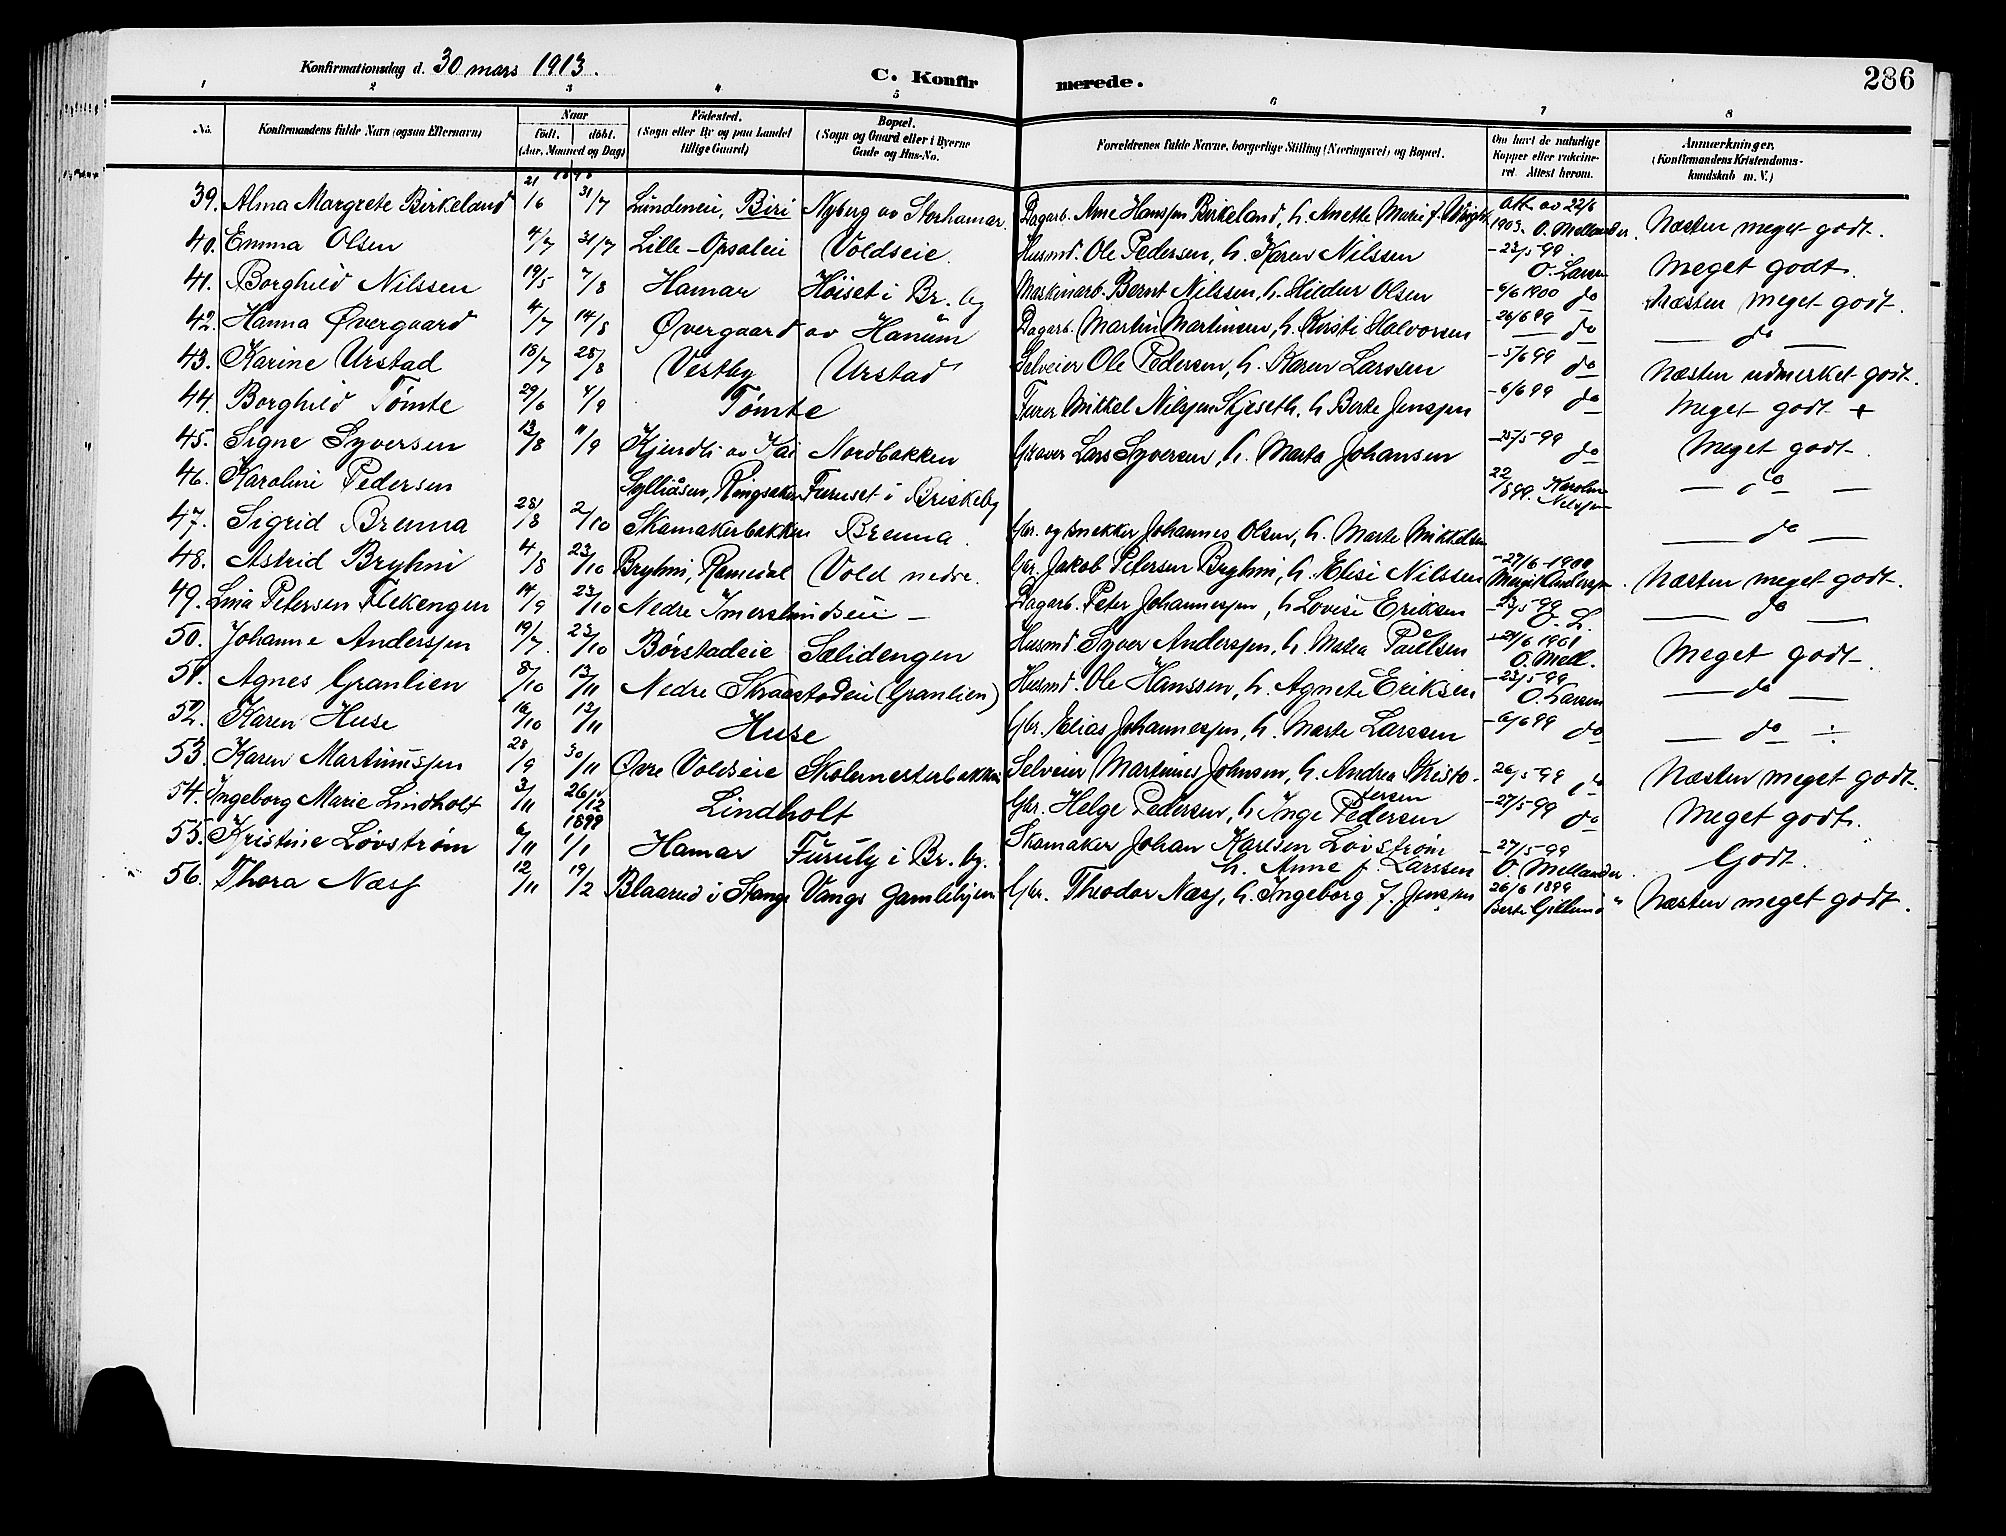 Konfirmationsdag d. 30 mars 1913. C. Konfirmerede. 286
1 2 3 4 5 6 7 8
No. Konfirmandens fulde Navn (ogsaa Efternavn) Naar født. døbt. (Aar, Maaned og Dag) Fødested. (Sogn eller By og paa Landet tillige Gaard) Bopæl. (Sogn og Gaard eller i Byerne Gade og Hus-No. Forældrenes fulde Navne, borgerlige Stilling (Næringsvei) og Bopæl. Om havt de naturlige Kopper eller vakcineret. Attest herom. Anmærkninger. (Konfirmandens Kristendomskundskab m. V.)
1898
39. Alma Margrete Birkeland 21/6 31/7 Lundeneie, Biri Nyberg av Storhamar Dagarb. Arne Hanssen Birkeland, h. Anette Marie f. Att. av 22/6 1903. O. Mellander. Næsten meget godt.
40. Emma Olsen 4/7 31/7 Lille-Opsaleie Voldseie. Husmd. Ole Pedersen, h. Karen Nilssen - 23/5 99. O. Larsen Meget godt.
41. Borghild Nilssen 19/5 7/8 Hamar Höiset i Br. by Maskinarb. Bernt Nilssen, h. Hildur Olsen - 6/6 1900 do Næsten meget godt.
42. Hanna Øvergaard 4/7 14/8 Øvergaard av Hanum Dagarb. Martin Martinsen, h. Kirsti Halvorsen - 26/6 99 do — do —
43. Karine Urstad 18/7 28/8 Vestby Urstad Selveier Ole Pedersen, h. Karen Larssen - 5/6 99 do Næsten udmerket godt.
44. Borghild Tömte 29/6 4/9 Tömte Furer Mikkel Nilssen Skjeseth, h. Berte Jenssen - 6/6 99 do Meget godt +
45. Signe Syversen 13/8 11/9 Kjendli av Nordbakken Graver Lars Syversen, h. Marta Johansen - 25/5 99 do Meget godt.
46. Karoline Pedersen Sylliåsen, Ringsaker Furuset i Briskeby 22/ 1899. Karoline Nilssen — do —
47. Sigrid Brenna 28/8 2/10 Skomakerbakken Brenna. Gbr. og snekker Johannes Olsen, h. Marte Mikkelsen — do —
48. Astrid Bryhni 4/8 23/10 Bryhni, Romedal Vold nedre. Gbr. Jakob Petersen Bryhni, h. Elise Nilssen - 27/6 1900 Næsten meget godt.
49. Lina Petersen Flekengen 14/9 23/10 Nedre Imerslundseie — Dagarb. Peter Johannessen, h. Lovise Eriksen - 23/5 99 O. L. — do —
50. Johanne Anderssen 19/7. 23/10 Börstadeie Sælidengen Husmd. Syver Anderssen, h. Matea Paulsen - 24/6 1901 O. Mell. Meget godt.
51. Agnes Granlien 8/10 13/11 Nedre Skraastadeie (Granlien) Husmd. Ole Hanssen, h. Agnete Eriksen - 23/5 99 O. Larsen — do —
52. Karen Huse 16/10 13/11 Huse Gbr. Elias Johannessen, h. Marte Larssen - 6/6 99 do — do — ÷
53. Karen Martinussen 28/9 30/11 Øvre Voldseie Skolemesterbakken Selveier Martinus Johnsen, h. Andrea Kristofersen 26/5 99 do Næsten meget godt.
54. Ingeborg Marie Lindholt 3/11 26/12 Lindholt Gbr. Helge Pedersen, h. Inge Pedersen - 27/5 99 do Meget godt.
1899
55. Kristine Lövström 6/11 1/1 Hamar Furuly i Br. by. Skomaker Johan Karlsen Lövström h. Anne f. Larssen - 27/5 99 O. Mellander. Godt.
56. Thora Næss 12/11 19/2 Blaarud i Stange Vangs Gamlehjem Gbr. Theodor Næss, h. Ingeborg f. Jenssen 26/6 1899 Berte Gillund Næsten meget godt.